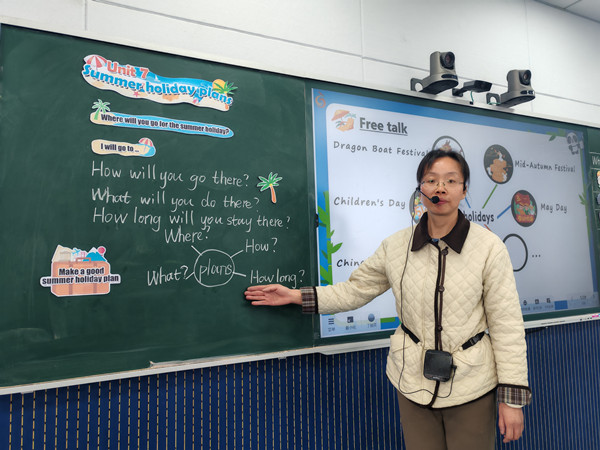 Unit 7
Summer holiday plans
Where will you go for the summer holiday?
I will go to ...
How will you go there?
What will you do there?
How long will you stay there?
Where?
How?
What?
plans
How long?
Make a good
summer holiday plan
Free talk
Dragon Boat Festival
Mid-Autumn Festival
Children's Day
May Day
holidays
...